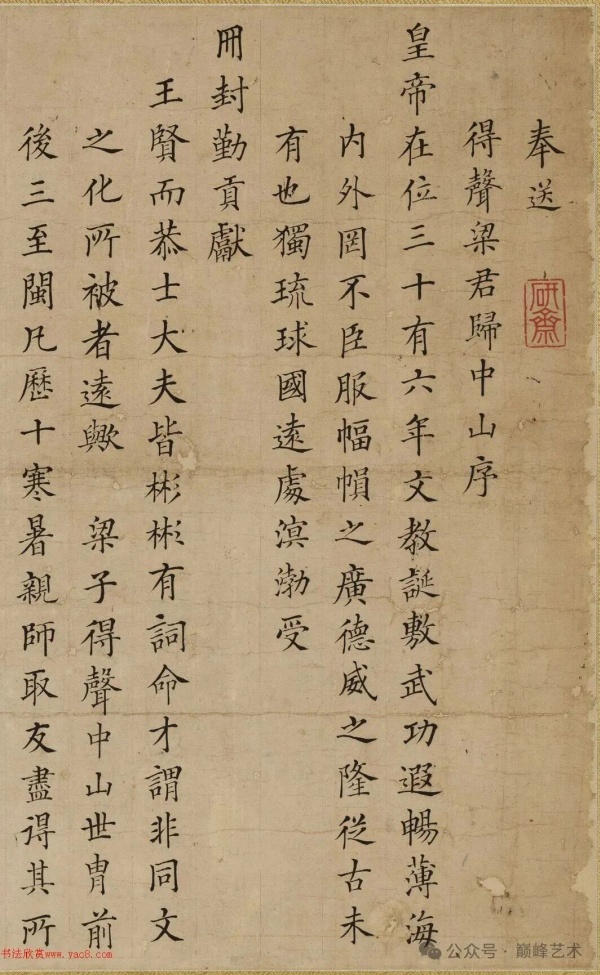 奉送
研齋
得聲梁君歸中山序
皇帝在位三十有六年文教誕敷武功遐暢薄海
内外罔不臣服幅幀之廣德威之隆從古未
有也獨琉球國遠處溟渤受
冊封勤貢獻
王賢而恭士大夫皆彬彬有詞命才謂非同文
之化所被者遠歟 梁子得聲中山世胄前
後三至閩凡歷十寒暑親師取友盡得其所
书法欣赏www.yac8.com
公众号·巅峰艺术